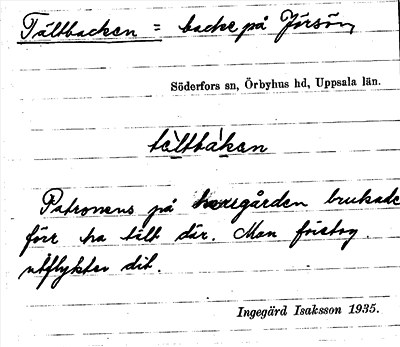 Tältbacken = backe på Jörsön
Söderfors sn, Örbyhus hd, Uppsala län.
tältbàkan
Patronens på herregården brukade
förr ha tält där. Man företog
utflykter dit.
Ingegärd Isaksson 1935.